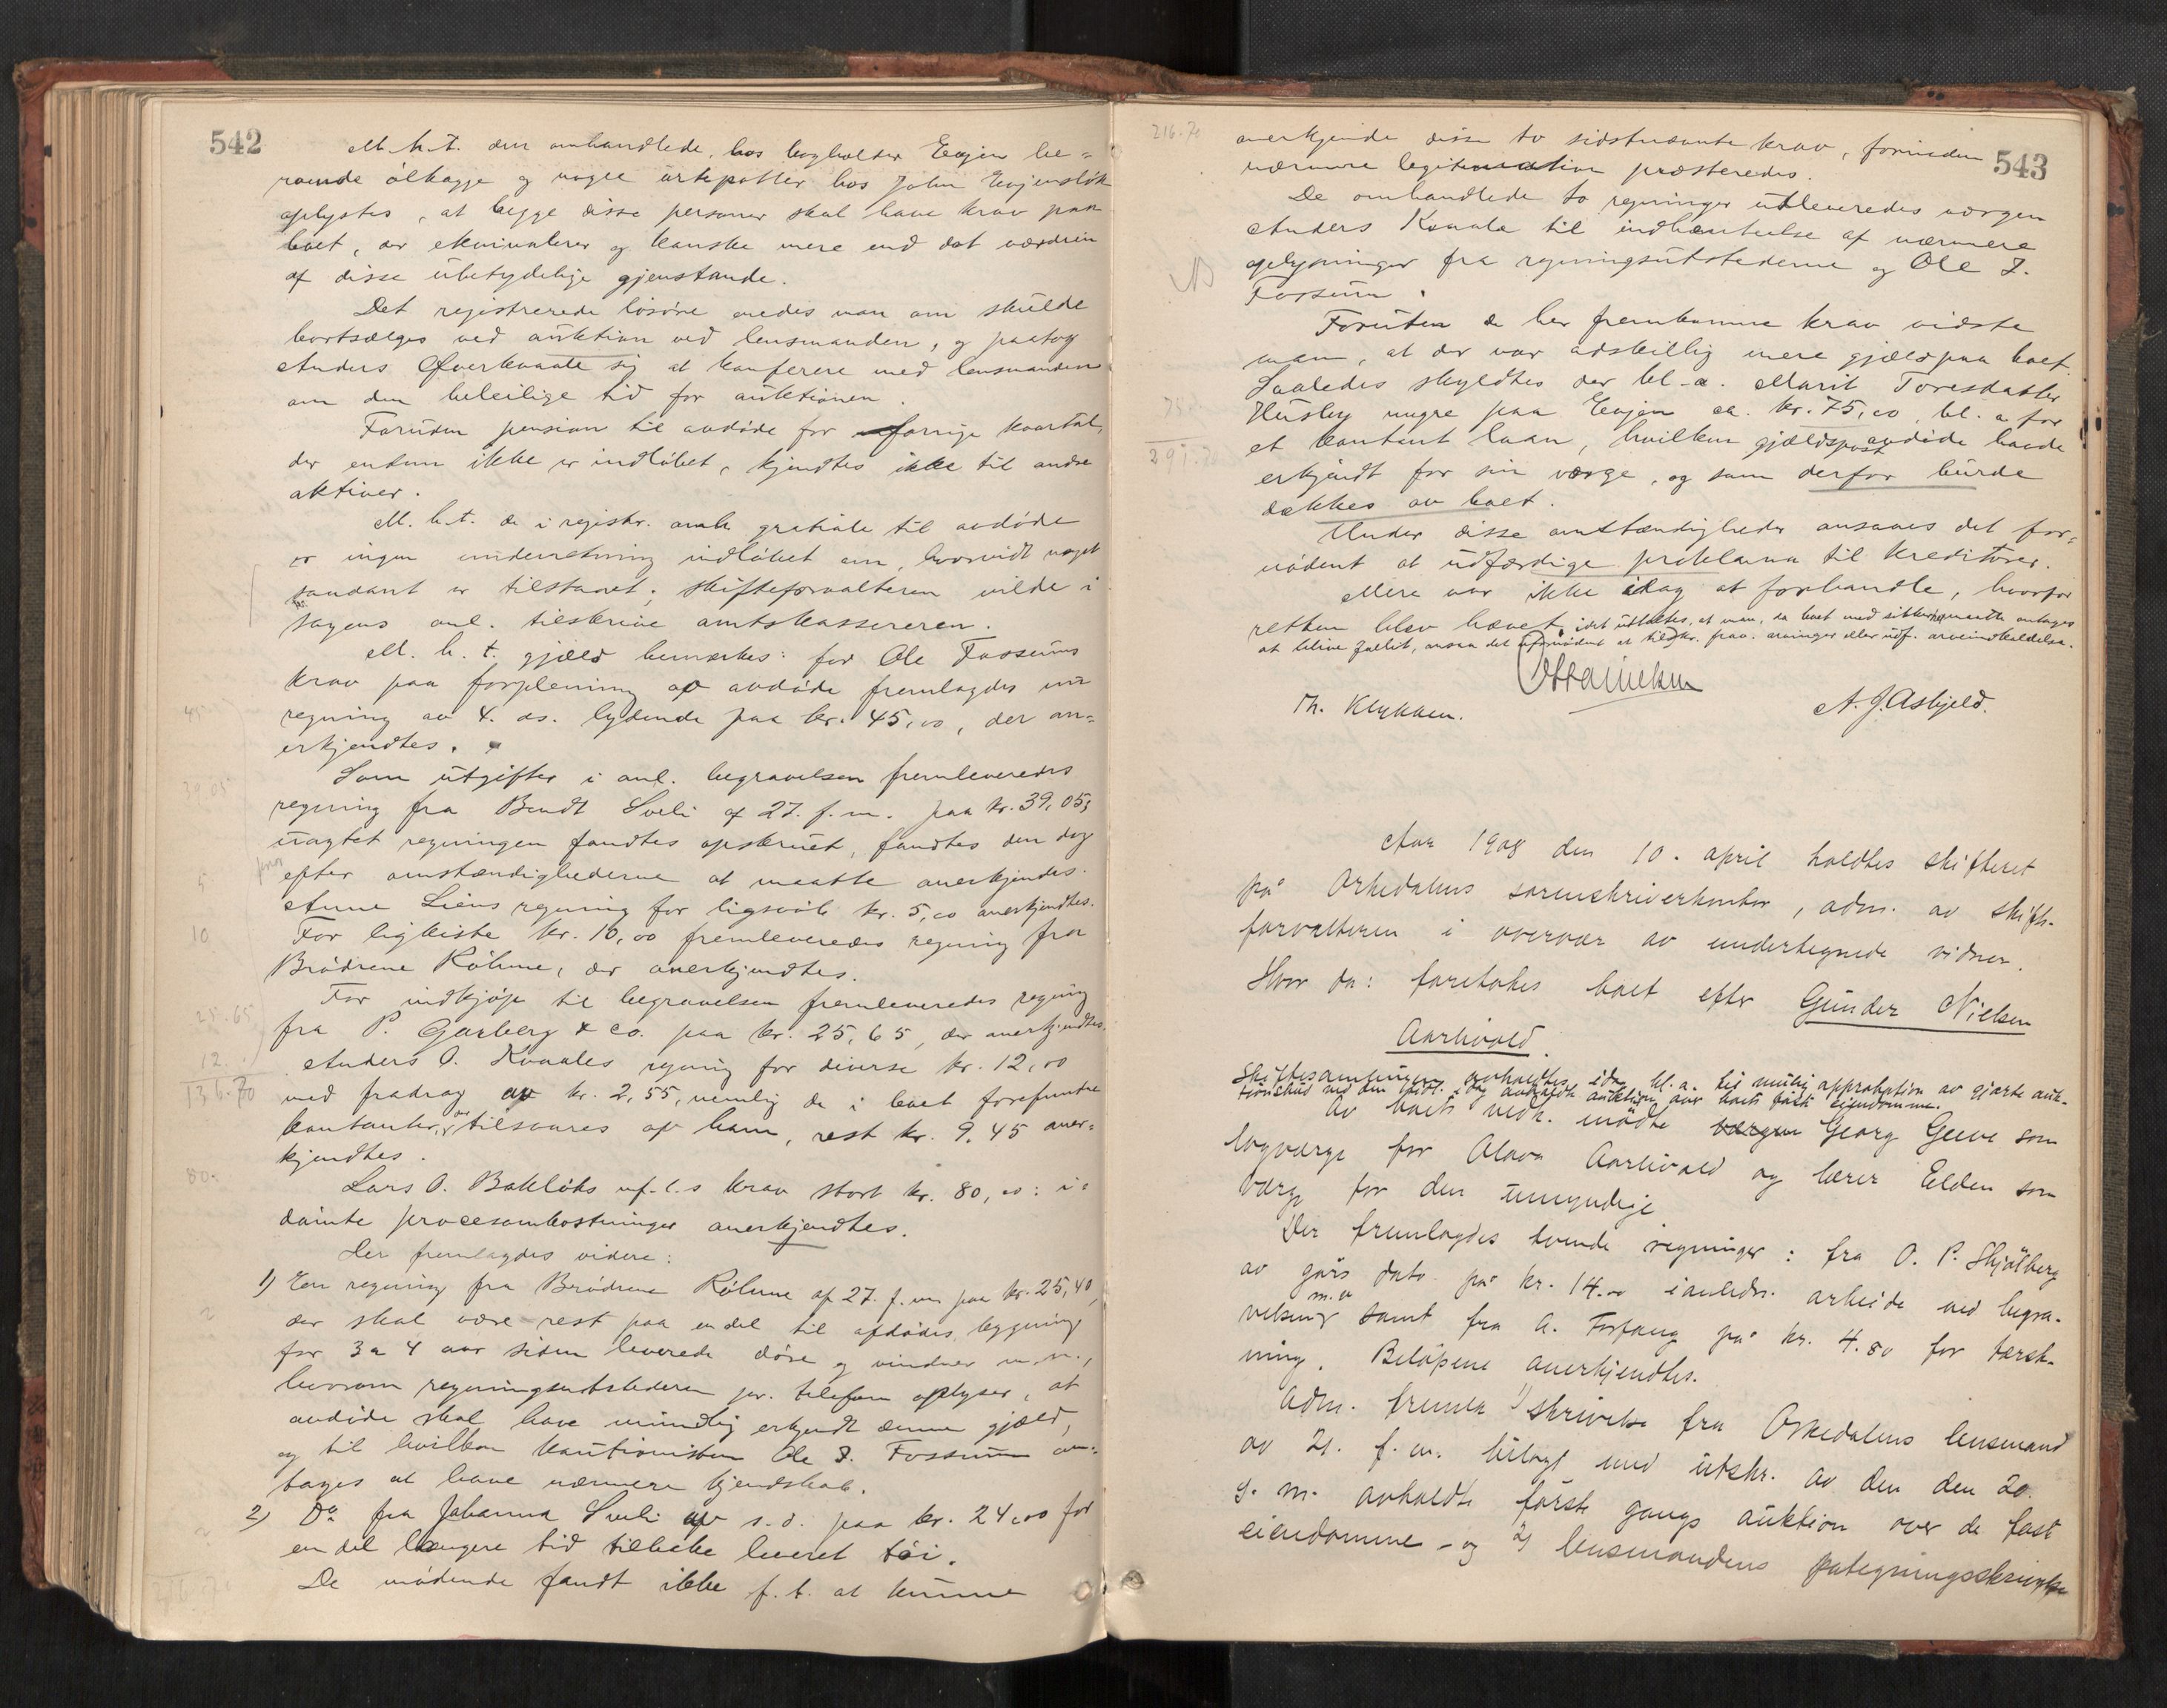 542
M.h.t. den omhandlede, hos bogholder Evjen be=
roende ölkagge og nogle urtepotter hos John Evjensløk
oplystes, at begge disse personer skal have krav paa
boet, der ekvivalerer og kanske mere end det værdien
af disse ubetydelige gjenstande.
Det registrerede lösöre enedes man om skulde
bortsælges ved auktion ved lensmanden, og paatog
Anders Øverkvaale sig at konferere med lensmanden
om den beleilige tid for auktionen.
Foruden pension til avdöde for forrige kvartal,
der endnu ikke er indlöbet, kjendtes ikke til andre
aktiver.
M.h.t. de i registr. omh. gratiale til avdöde
er ingen underretning indlöbet om, hvorvidt noget
saadant er tilstaaet; skifteforvalteren vilde i
sagens anl. tilskrive amtskassereren.
M.h.t. gjæld bemærkes: for Ole Fossums
krav paa forpleining av avdöde fremlagdes nu
regning av 4. ds. lydende paa kr. 45,00, der an=
erkjendtes.
Som utgifter i anl. begravelsen fremleveredes
regning fra Bendt Sveli af 27. f.m. paa kr. 39,05;
uagtet regningen fandtes opskruet, fandtes den dog
efter omstændighederne at maatte anerkjendes.
Anne Liens regning for ligsvöb kr. 5,00 anerkjendtes.
For ligkiste kr. 10,00 fremleveredes regning fra
Brödrene Röhme, der anerkjendtes.
For indkjöp til begravelsen fremleveredes regning
fra P. Garberg & Co. paa kr. 25,65, der anerkjendtes.
Anders O. Kvaales regning for diverse kr. 12,00
med fradrag av kr. 2,55, nemlig de i boet forefundne
kontanter, der tilsvares af ham, rest kr. 9.45 aner=
kjendtes.
Lars O. Bakløks krav stort kr. 80,00: i=
dömte procesomkostninger anerkjendtes.
Der fremlagdes videre:
1) En regning fra Brödrene Röhme af 27. f.m. paa kr. 25,40,
der skal være rest paa endel til afdödes bygning
for 3 a 4 aar siden leverede döre og vinduer m.m.,
hvorom regningsutstederen pr. telefon oplyser, at
avdöde skal have mundtlig erkjendt denne gjæld,
og til hvilken kautionisten Ole I. Fossum an=
tages at have nærmere kjendskab.
2) Do fra Johanna Sveli av s.d. paa kr. 24,00 for
en del længere tid tilbake leveret töi.
De mödende fandt ikke f.t. at kunne
45.
39.05
5
10
25.65
12.
136.70
80.
216.70
543
anerkjende disse to sidstnævnte krav, forinden
nærmere legitimation præsteredes.
De omhandlede to regninger utleveredes værgen
Anders Kvaale til indhentelse af nærmere
oplysninger fra regningsutstederne og Ole I.
Fossum.
NB
Foruten de her fremkomne krav vidste
man, at der var adskillig mere gjæld paa boet.
Saaledes skyldtes der bl.a. Marit Toresdatter
Husby nugre paa Evjen ca. kr. 75,00, bl.a. for
et kontant laan, hvilken gjældspost avdöde havde
erkjendt for sin værge, og som derfor burde
dækkes av boet.
75.
291.70
Under disse omstændigheder ansaaes det for=
nödent at udfærdige proklama til kreditorer.
Mere var ikke idag at forhandle, hvorfor
retten blev hævet, idet udtaltes, at man, da boet med sikkerhed maatte antages
at blive fallit, ansaa det ufornödent at tilskr. frav. arvinger eller udf. arveindkaldelse.
Th. Klykken.
A. J. Asbjeld.
Aar 1908 den 10. april holdtes skifteret
på Orkedalens sorenskriverkontor, adm. av skifte-
forvalteren i overvær av undertegnede vidner.
Hvor da: foretokes boet efter Gunder Nielsen
Aarlivold.
Skiftesamlingen avholdtes idag bl.a. til mulig approbation av gjorte auk-
tionsbud ved den avholdte auktion over boets faste eiendomme.
Av boets vedk. mödte værgen Georg Geeve som
lagværge for Olava Aarlivold og lærer Elden som
værge for den umyndige
Der fremlagdes tvende regninger: fra O. P. Skjölberg
av gårs dato på kr. 14.00 i anledn. arbeide ved begra-
velsen m.v. samt fra A. Forfang på kr. 4.80 for tærsk-
ning. Belöpene anerkjendtes.
Adm. fremla 1) skrivelse fra Orkedalens lensmand
av 21. f.m. bilagt med utskr. av den den 20.
s.m. avholdte förste gangs auktion over de faste
eiendomme – og 2) lensmandens påtegningsskrivelse